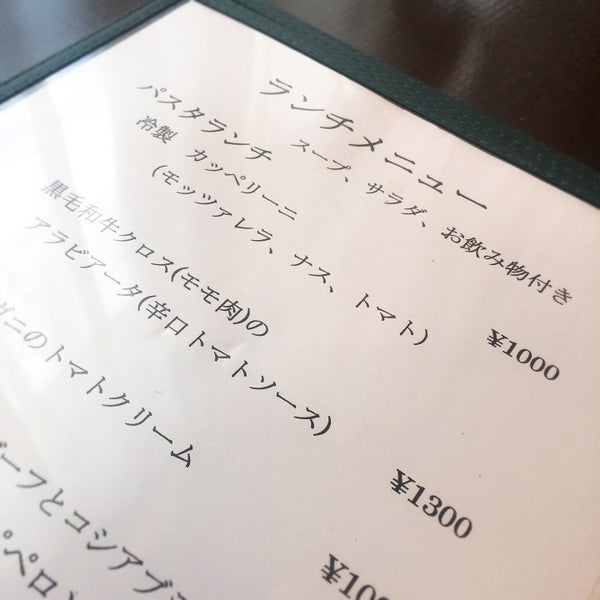 ランチメニュー
パスタランチ スープ、サラダ、お飲み物付き
冷製 カッペリーニ
(モッツァレラ、ナス、トマト) ¥1000
黒毛和牛クロス(モモ肉)の
アラビアータ(辛口トマトソース)
¥1300
グニのトマトクリーム
¥10
ーフとコシアブ
ペペロ